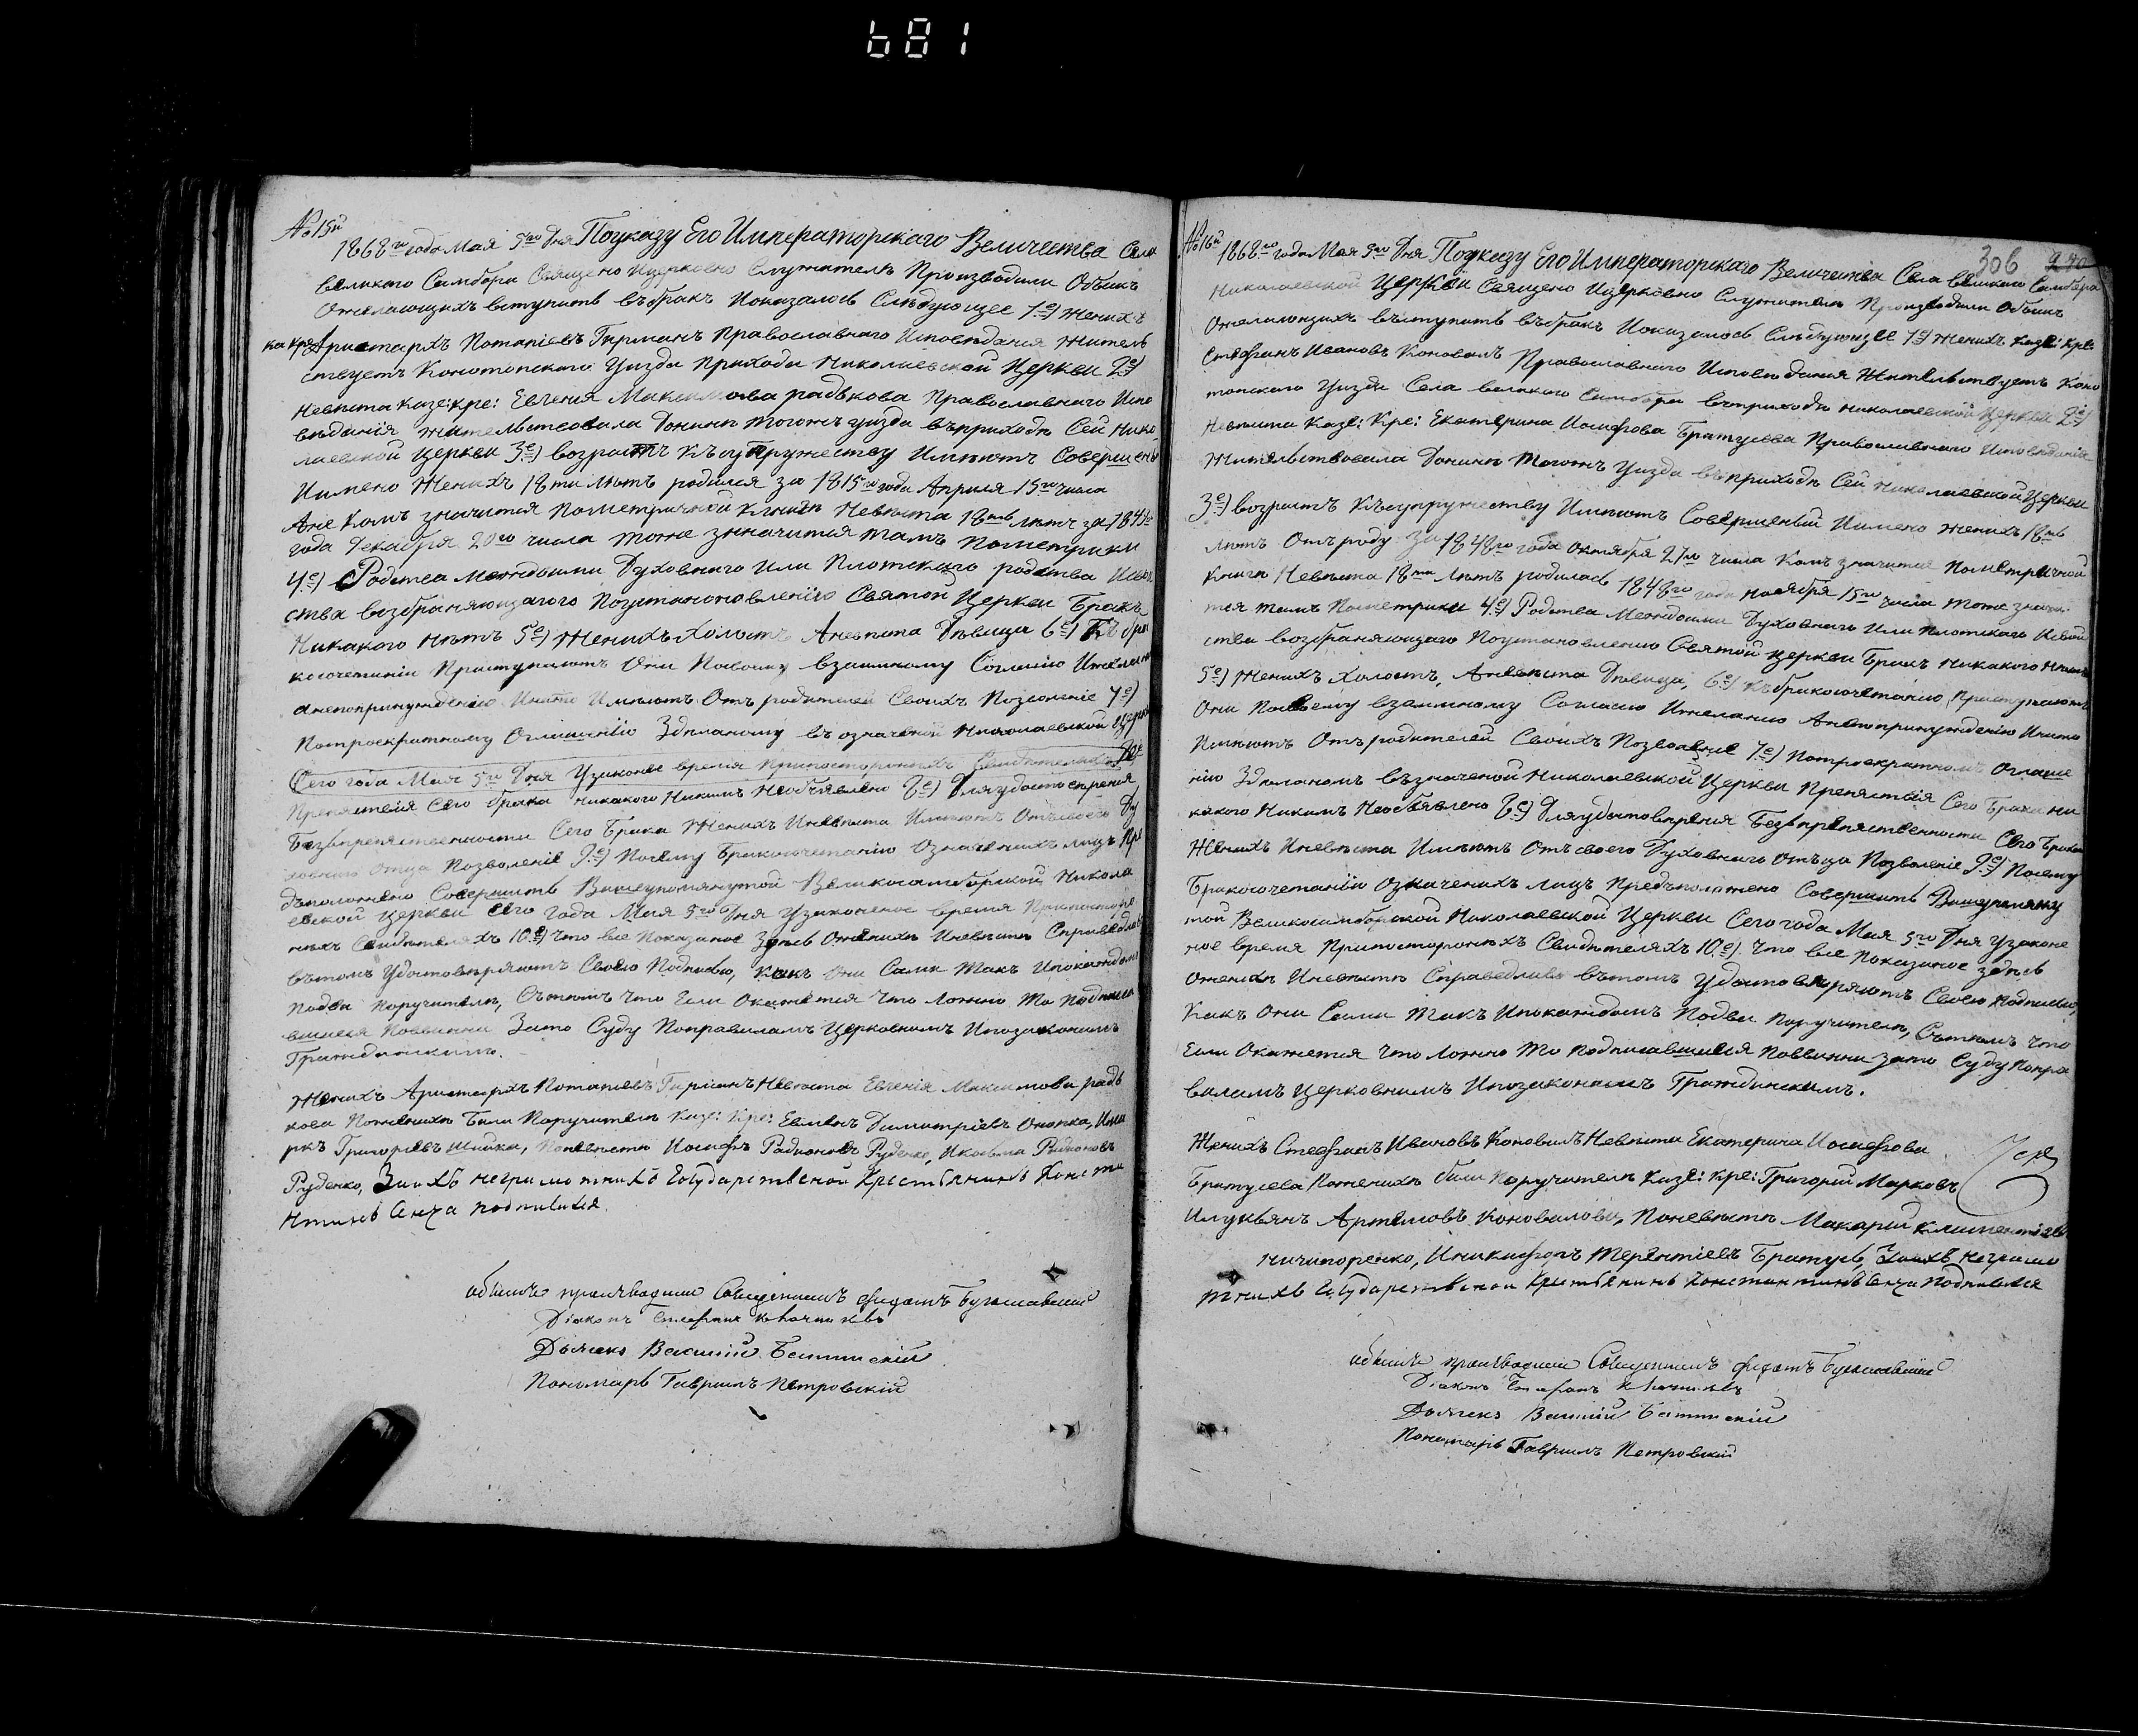 681
№ 15й
1868го года Мая 5го Дня Поуказу Его Императорскаго Величества Села
великаго Самбора Священо Ицерковно Служители Производили Обыскъ
Ожелающихъ вступить въбракъ Иоказалось Слѣдующее 1е) Женихъ
ка: кре: Аристархъ Потапіевъ Гирманъ Православнаго Исповѣданія Житель
ствуетъ Конотопскаго Уизда Прихода Николаевской Церкви 2е)
Невѣста казе: кре: Евгенія Максимова радькова Православнаго Испо
вѣданія Жительствовала Донинѣ Тогожъ уизда въприходѣ Сей Нико
лаевской Церкви 3е) возрастъ Къ супружеству Имѣютъ Совершены
Иимено Женихъ 18ти лѣтъ родился за 1815го года Априля 15го числа
Аие Комъ значится Пометричной Книги Невѣста 18ть лѣтъ за 184
года Декабря 20го числа тоже значится тамъ Пометрики
4е) Родства Междоими Духовнаго Или Плотскаго родства Исвой
ства возбраняющагого Поустаноновленію Святой Церкви Бракъ
Никакого Нѣтъ 5е) Женихъ Холостъ Аневѣста Дѣвица 6е) Къ бра
косочетанію Приступаютъ Они Посвоему взаимному Согласію Ижеланію
анепопринужденію Инато Имѣютъ Отъ родителей Своихъ Позволеніе 7е)
Потроекратному Оглашенію Здѣланому въ означеной Николаевской Церкви
Сего года Мая 5го Дня Узаконое время Припостороннихъ Свидѣтеляхъ
Препятствія Сего брака никакого Никимъ Необъявлено 8е) Дляудостовѣренія
Безпрепятственности Сего Брака Женихъ Иневѣста Имѣютъ Отъсвоего Ду
ховнаго Отца Позволеніе 9е) Посему Бракосочетанію Означенихъ лицъ Пре
дположено Совершить Вышеупомянутой Великосамборской Никола
евской Церкви Сего года Мая 5го Дня Узаконеное время Припосторо
ннихъ Свидѣтеляхъ 10е) Что все Показаное Здѣсь Оженихѣ Иневѣстѣ Справедливо
вътомъ Удостовѣряютъ Своею Подписью, Какъ Они Сами Такъ Ипокаждомъ
Подва Поручителя, Сътѣмъ Что Если Окажется Что Ложно То Подписа
вшиеся Повинни Зато Суду Поправиламъ Церковнимъ Ипозаконамъ
Гражданскимъ.
Женихъ Аристархъ Потапіевъ Гирманъ Невѣста Евгенія Максимова радь
кова Поженихѣ Били Поручители Казе: Кре: Евменъ Димитріевъ Онопка, Има
ркъ Григоріевъ Шійка, Поневѣстѣ Иосифъ Радионовъ Руденко, Икозьма Радионовъ
Руденко, Заихъ неграмотнихъ Государственой Крестьянинъ Конста
нтинъ Сенча подписался.
обыскъ производили Священникъ Бугославскій
Діаконъ Стефанъ Ключниковъ
Дьячекъ Василій
Пономарь Гавріилъ Петровскій
№ 16й
306
270
1868го года Мая 5го Дня Поуказу Его Императорскаго Величества Села великаго Самбора
Николаевской Церкви Священо Ицерковно Служители Производили Обыскъ
Ожелающихъ въступить въбракъ Иоказалось Слѣдующее 1е) Женихъ казе: кре:
Стефанъ Ивановъ Коновалъ Православнаго Исповѣданія Жительствуетъ Коно
топскаго Уизда Села великаго Самбора въприходѣ Николаевской Церкви 2е)
Невѣста Казе: Кре: Екатерина Иосифова Братусева Православнаго Исповѣданія
Жительствовала Донинѣ Тогожъ Уизда въприходѣ Сей Николаевской Церкви
3е) возрастъ Къ супружеству Имѣютъ Совершеный Иимено Женихъ 18ть
лѣтъ Отъроду За 1848го года Октября 27го числа Какъ значится Пометричной
Книги Невѣста 18ти лѣтъ родилась 1848го года Ноября 15го числа Тоже значи
тся тамъ Пометрики 4е) Родства Междоими Духовнаго Или Плотскаго Исвой
ства возбраняющаго Поустановленію Святой Церкви Бракъ Никакого Нѣтъ
5е) Женихъ Холостъ, Аневѣста Дѣвица, 6е) Къбракосочетанію Приступаютъ
Они Посвоему взаимному Согласію Ижеланію Анепопринужденію Инато
Имѣютъ Отъродителей Своихъ Позволеніе 7е) Потроекратномъ Оглаше
ніи Здѣланомъ въозначеной Николаевской Церкви Препятствія Сего Брака ни
какого Никимъ Необъявлено 8е) Дляудостовѣренія Безпрепятственности Сего Брака
Женихъ Иневѣста Имѣютъ Отъсвоего Духовнаго Отъца Позволеніе 9е) Посему
Бракосочетанію Означенихъ лицъ Предположено Совершить Вышеупомяну
той Великосамборской Николаевской Церкви Сего года Мая 5го Дня Узаконе
ное время Припостороннихъ Свидѣтеляхъ 10е) Что все Показаное здѣсь
Оженихѣ Иневѣстѣ Справедливо вътомъ Удостовѣряютъ Своею Подписью,
Какъ Они Сами Такъ Ипокаждомъ Подва Поручителя, Сътѣмъ Что
Если Окажется Что Ложно То Подписавшиеся Повинни Зато Суду Попра
виламъ Церковнимъ Ипозаконамъ Гражданскимъ.
Женихъ Стефанъ Ивановъ Коновалъ Невѣста Екатерина Иосифова
Братусева Поженихѣ били Поручители Казе: Кре: Григорій Марковъ
Илукьянъ Артемовъ Коноваловы, Поневѣстѣ Макарій Климентіевъ
Ничипоренко, Иникифоръ Терентіевъ Братусь, Заихъ неграмо
тнихъ Государственой Крестьянинъ Константинъ Сенча Подписался
обыскъ производили Священникъ Бугославскій
Діаконъ Стефанъ Ключниковъ
Дьячекъ Василій
Пономарь Гавріилъ Петровскій